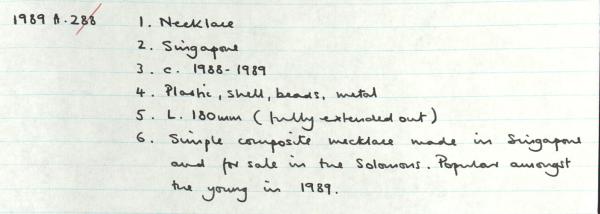 1989 A.288 1. Necklace
2. Singapore
3. c. 1988-1989
4. Plastic, shell, beads, metal
5. L. 180mm (fully extended out)
6. Simple composite necklace made in Singapore
and for sale in the Solomons. Popular amongst
the young in 1989.